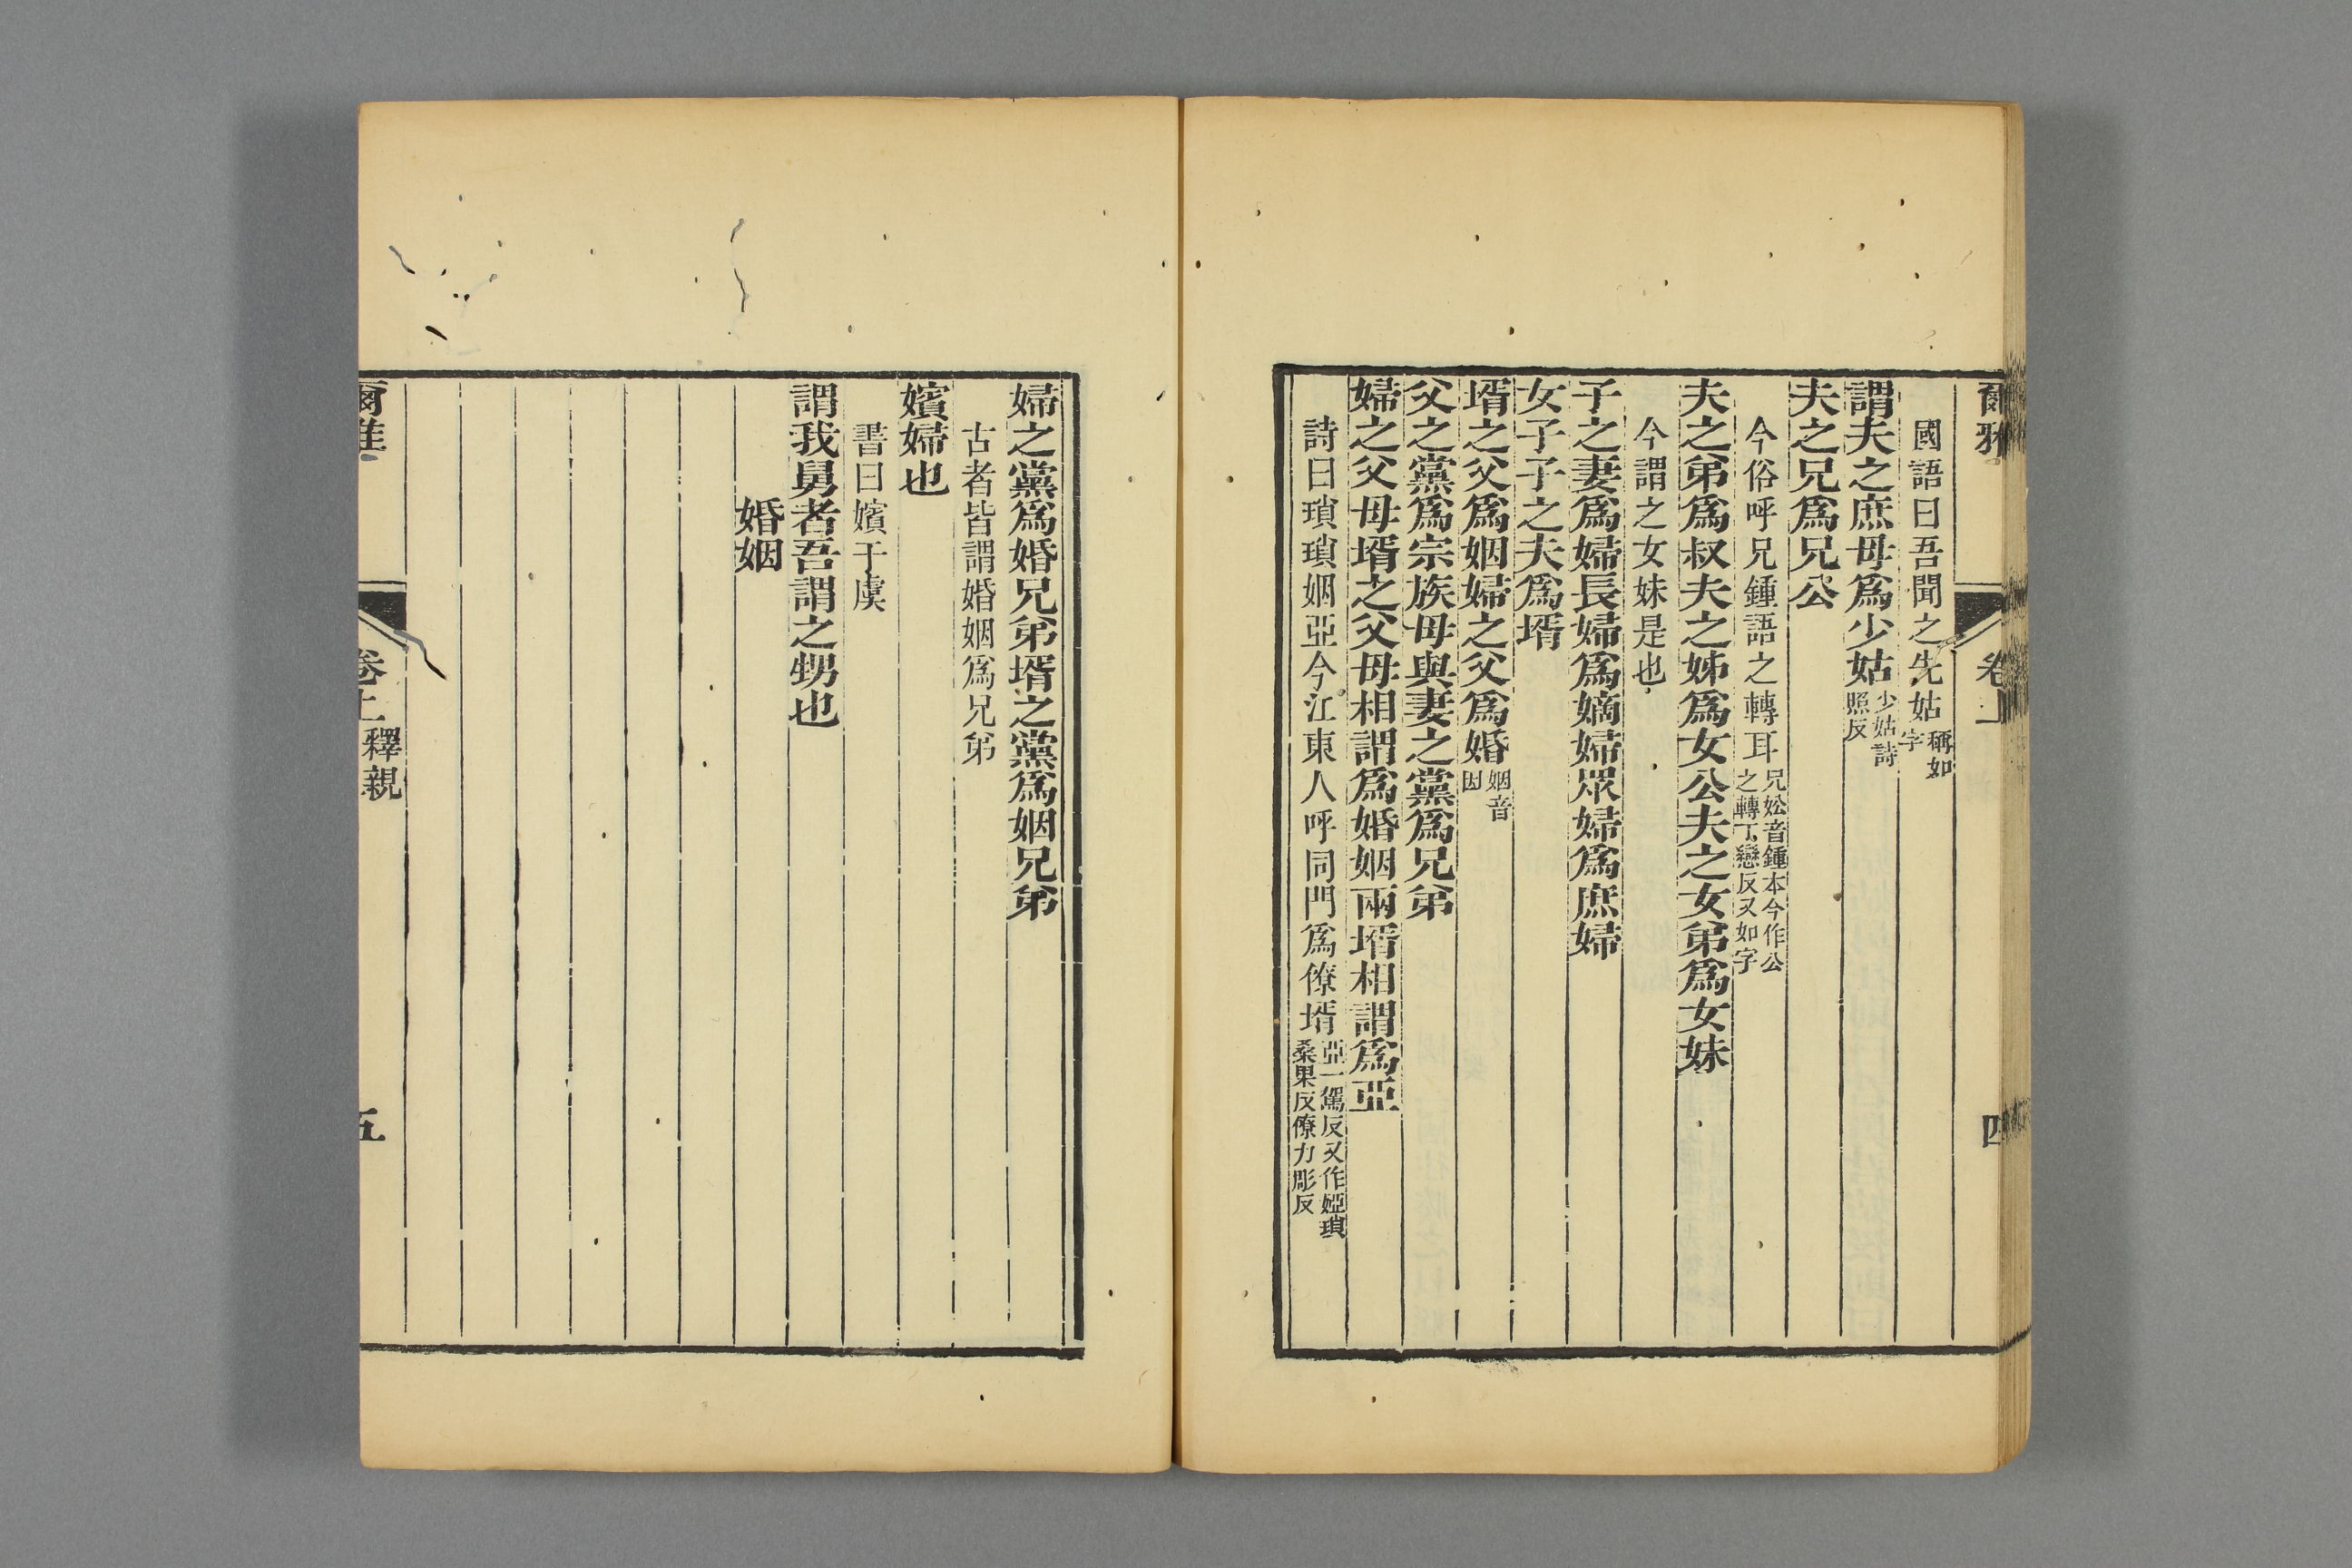 爾雅
卷上
四
國語曰吾聞之先姑稱如字
謂夫之庶母爲少姑少姑詩照反
夫之兄爲兄公
今俗呼兄鍾語之轉耳兄妐音鍾本今作公之轉丁戀反又如字
夫之弟爲叔夫之姊爲女公夫之女弟爲女妹
今謂之女妹是也
子之妻爲婦長婦爲嫡婦眾婦爲庶婦
女子子之夫爲壻
壻之父爲姻婦之父爲婚姻音因
父之黨爲宗族母與妻之黨爲兄弟
婦之父母壻之父母相謂爲婚姻兩壻相謂爲亞
詩曰瑣瑣姻亞今江東人呼同門爲僚壻亞一駕反又作婭瑣桑果反僚力彫反
婦之黨爲婚兄弟壻之黨爲姻兄弟
古者皆謂婚姻爲兄弟
嬪婦也
書曰嬪于虞
謂我舅者吾謂之甥也
婚姻
爾雅
卷上 釋親
五